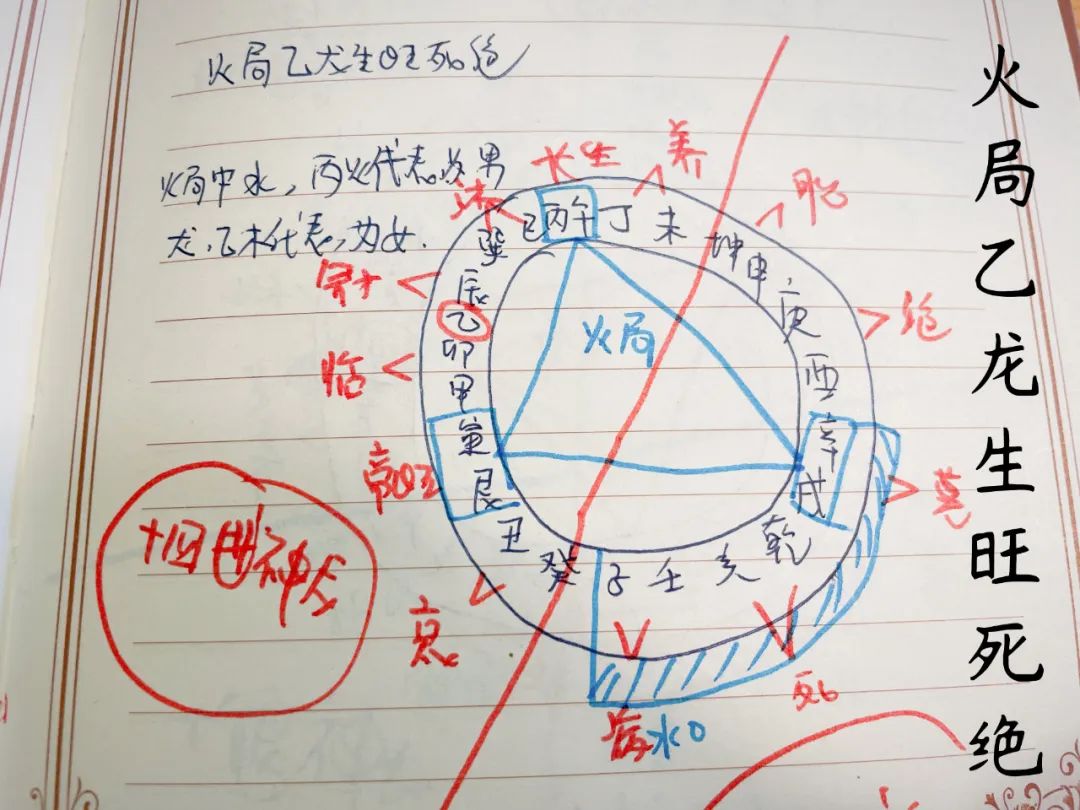 火局乙龙生旺死绝
火局中水，丙火代表为男
龙.乙木代表，为女.
长生
养
胎
沐
冠
临
帝旺
衰
病
死
墓
绝
巳 丙午 丁 未 坤申 庚 酉 辛 戌 乾 亥 壬 子 癸 丑 艮 寅 甲 卯 乙 辰 巽
火局
水口
火局乙龙生旺死绝